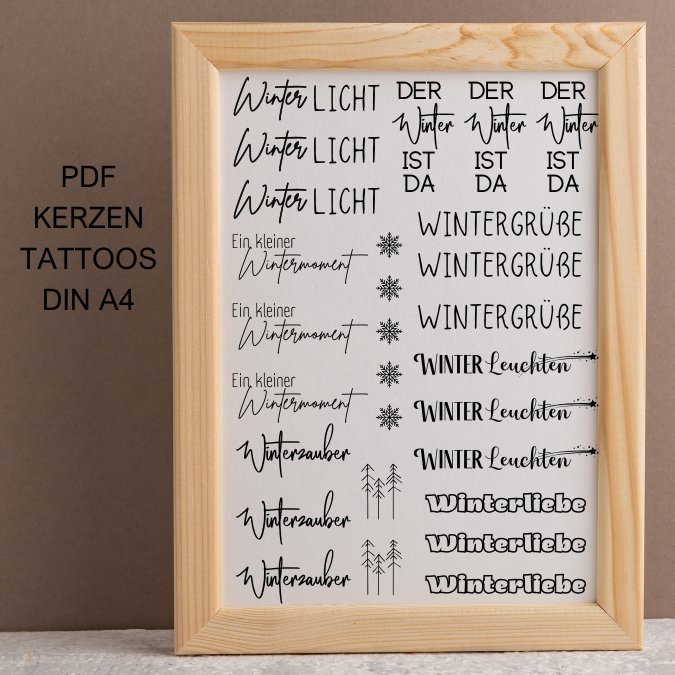 PDF
KERZEN
TATTOOS
DIN A4
Winter LICHT
Winter LICHT
Winter LICHT
Ein kleiner
Wintermoment
Ein kleiner
Wintermoment
Ein kleiner
Wintermoment
Winterzauber
Winterzauber
Winterzauber
DER DER DER
Winter Winter Winter
IST IST IST
DA DA DA
WINTERGRÜßE
WINTERGRÜßE
WINTERGRÜßE
WINTER Leuchten
WINTER Leuchten
WINTER Leuchten
Winterliebe
Winterliebe
Winterliebe